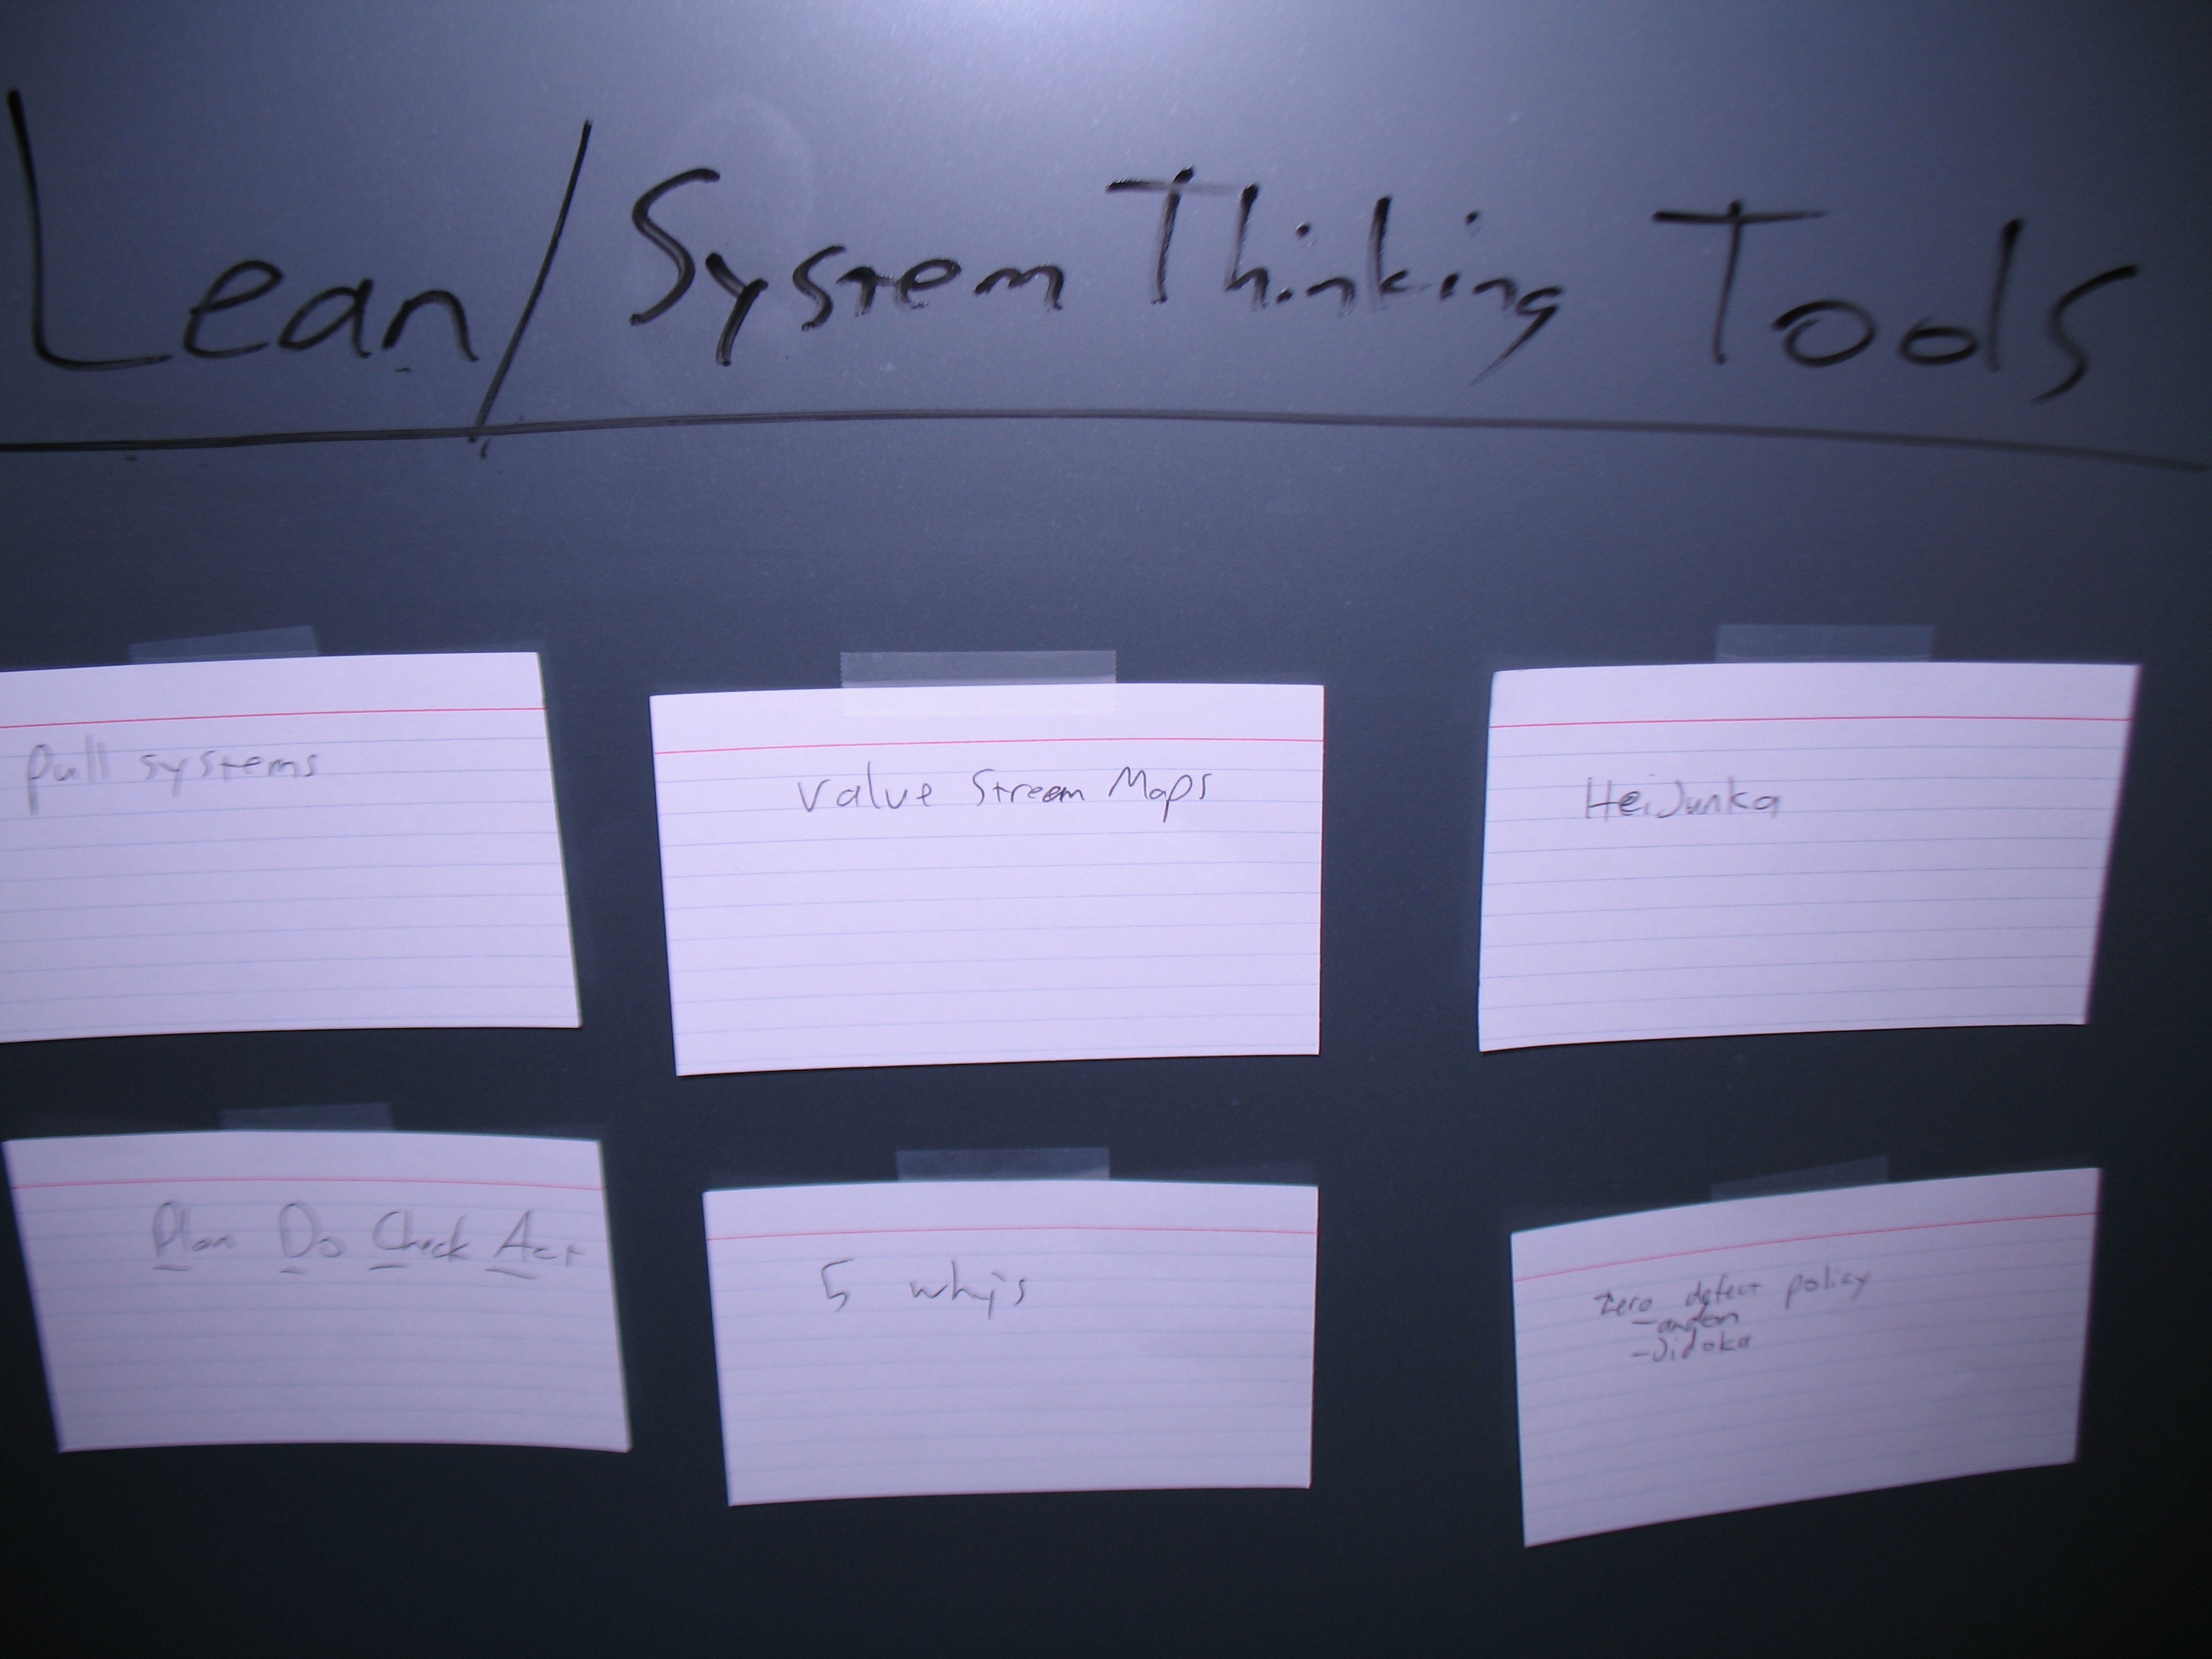 Lean/System Thinking Tools
Pull systems
Value Stream Maps
HeiJunka
Plan Do Check Act
5 why's
Zero defect policy
-andon
-Jidoka